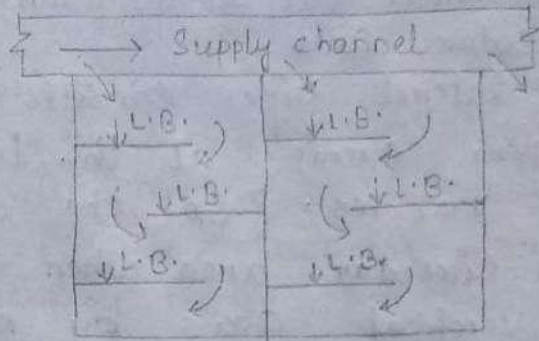 Supply channel
L.B. L.B.
L.B. L.B.
L.B. L.B.